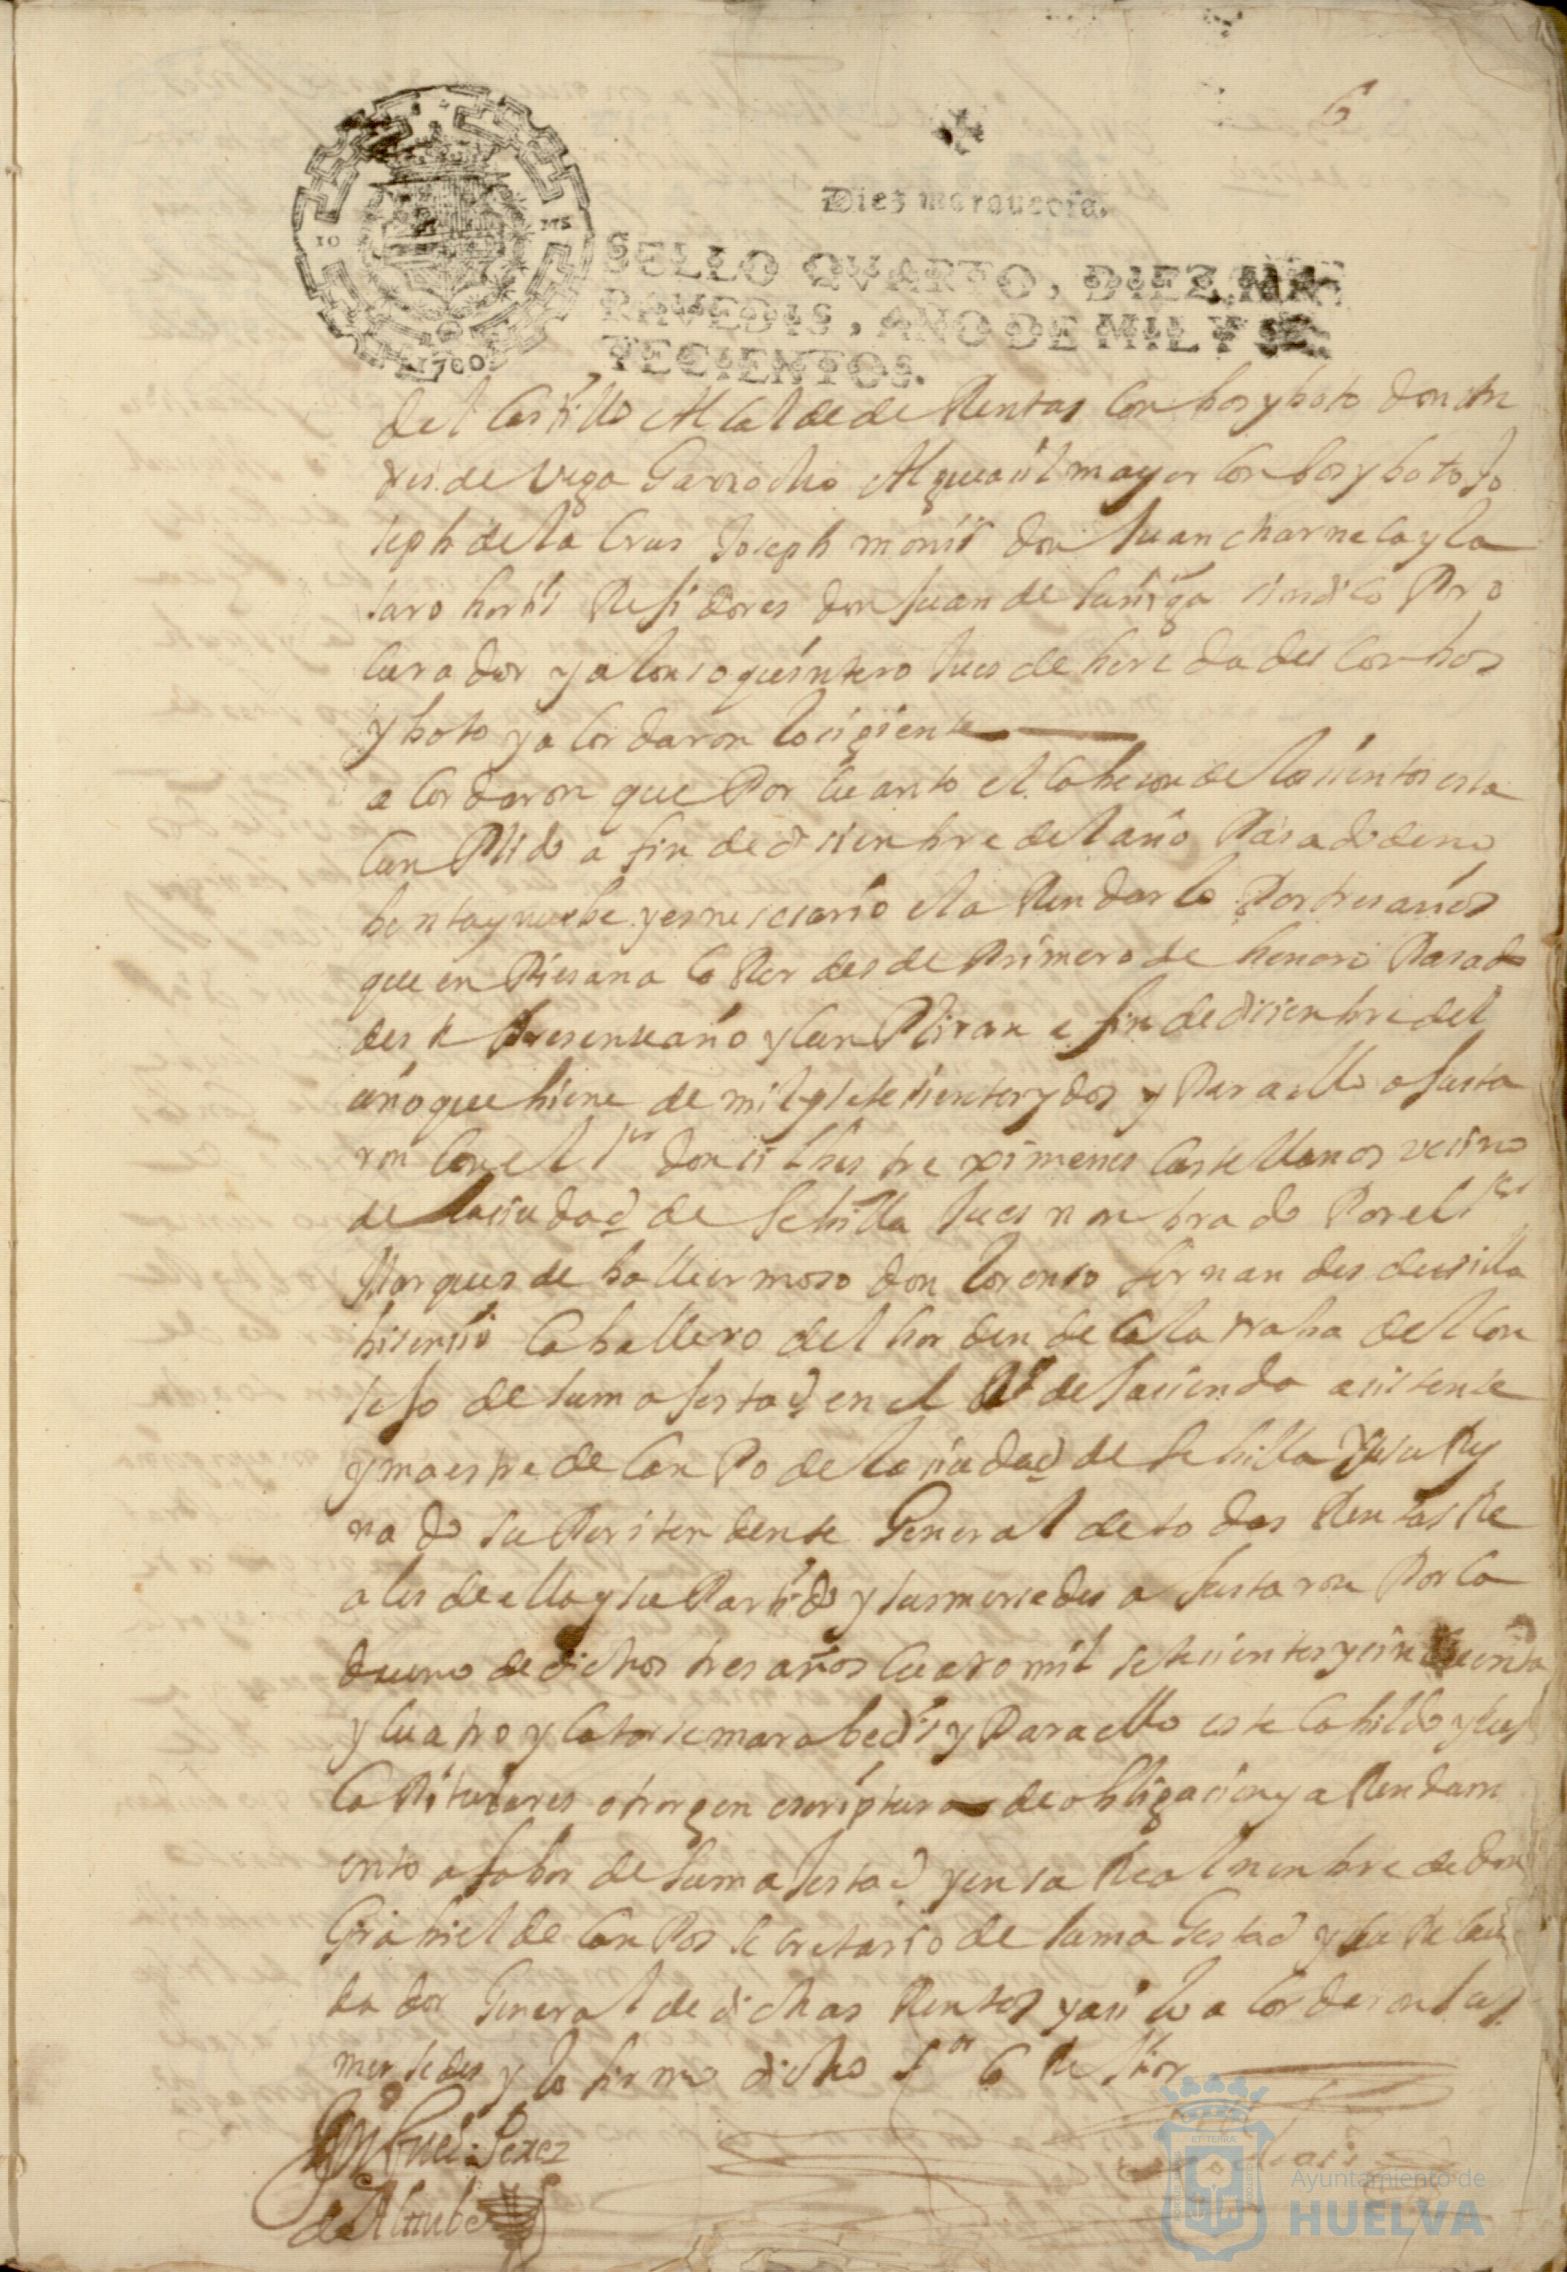 6
Diez maravedis.
SELLO QVARTO, DIEZ MA-
RAVEDIS, AÑO DE MIL Y SE-
TECIENTOS.
1700
del Castillo Alcalde de Rentas con bos y boto don An
dres de Vega Garrocho Alguasil mayor con bos y boto Jo
seph de la Crus Joseph monis don Juan charneca y la
saro hortis Residores don Juan de suñiga sindico Pro
curador y alonso quintero Jues de heredades con bos
y boto y acordaron lo siguiente
acordaron que Por cuanto el cabeson de los sientos esta
cunPlido a fin de disienbre del año Pasado de no
benta y nuebe y es nesesario el a Rendarlo Por tres años
que enPiesan a coRer desde Primero de henero Pasado
deste Presente año y cunPliran a fin de disienbre del
año que biene de mil y setesientos y dos y Para ello a Justa
ron con el sr don silbestre ximenes Castellanos vesino
de la siudad de Sebilla Jues nonbrado Por el sr
Marques de ballermoso don lorenso fernandes de villa
bisensio caballero del horden de Calatraba del Con
sejo de su magestad en el Rl de hasienda asistente
y maestre de canPo de la siudad de Sebilla y su Rey
nado suPeritendente General de todas Rentas Re
ales de ella y su Partido y sus mersedes a Justaron Por ca
da uno de dichos tres años cuatro mil setesientos y sincuenta
y cuatro y catorse marabedis y Para ello este Cabildo y sus
CaPitulares otorgen escriptura de obligasion y a Rendam
iento a fabor de su magestad y en su Real nonbre de don
Grabiel de CanPos secretario de su magestad y su Recau
dador General de dichas Rentas y asi lo acordaron sus
mersedes y lo firmo dicho sor CoRegidor
Miguel Perez
de Alttube
Ayuntamiento de
HUELVA